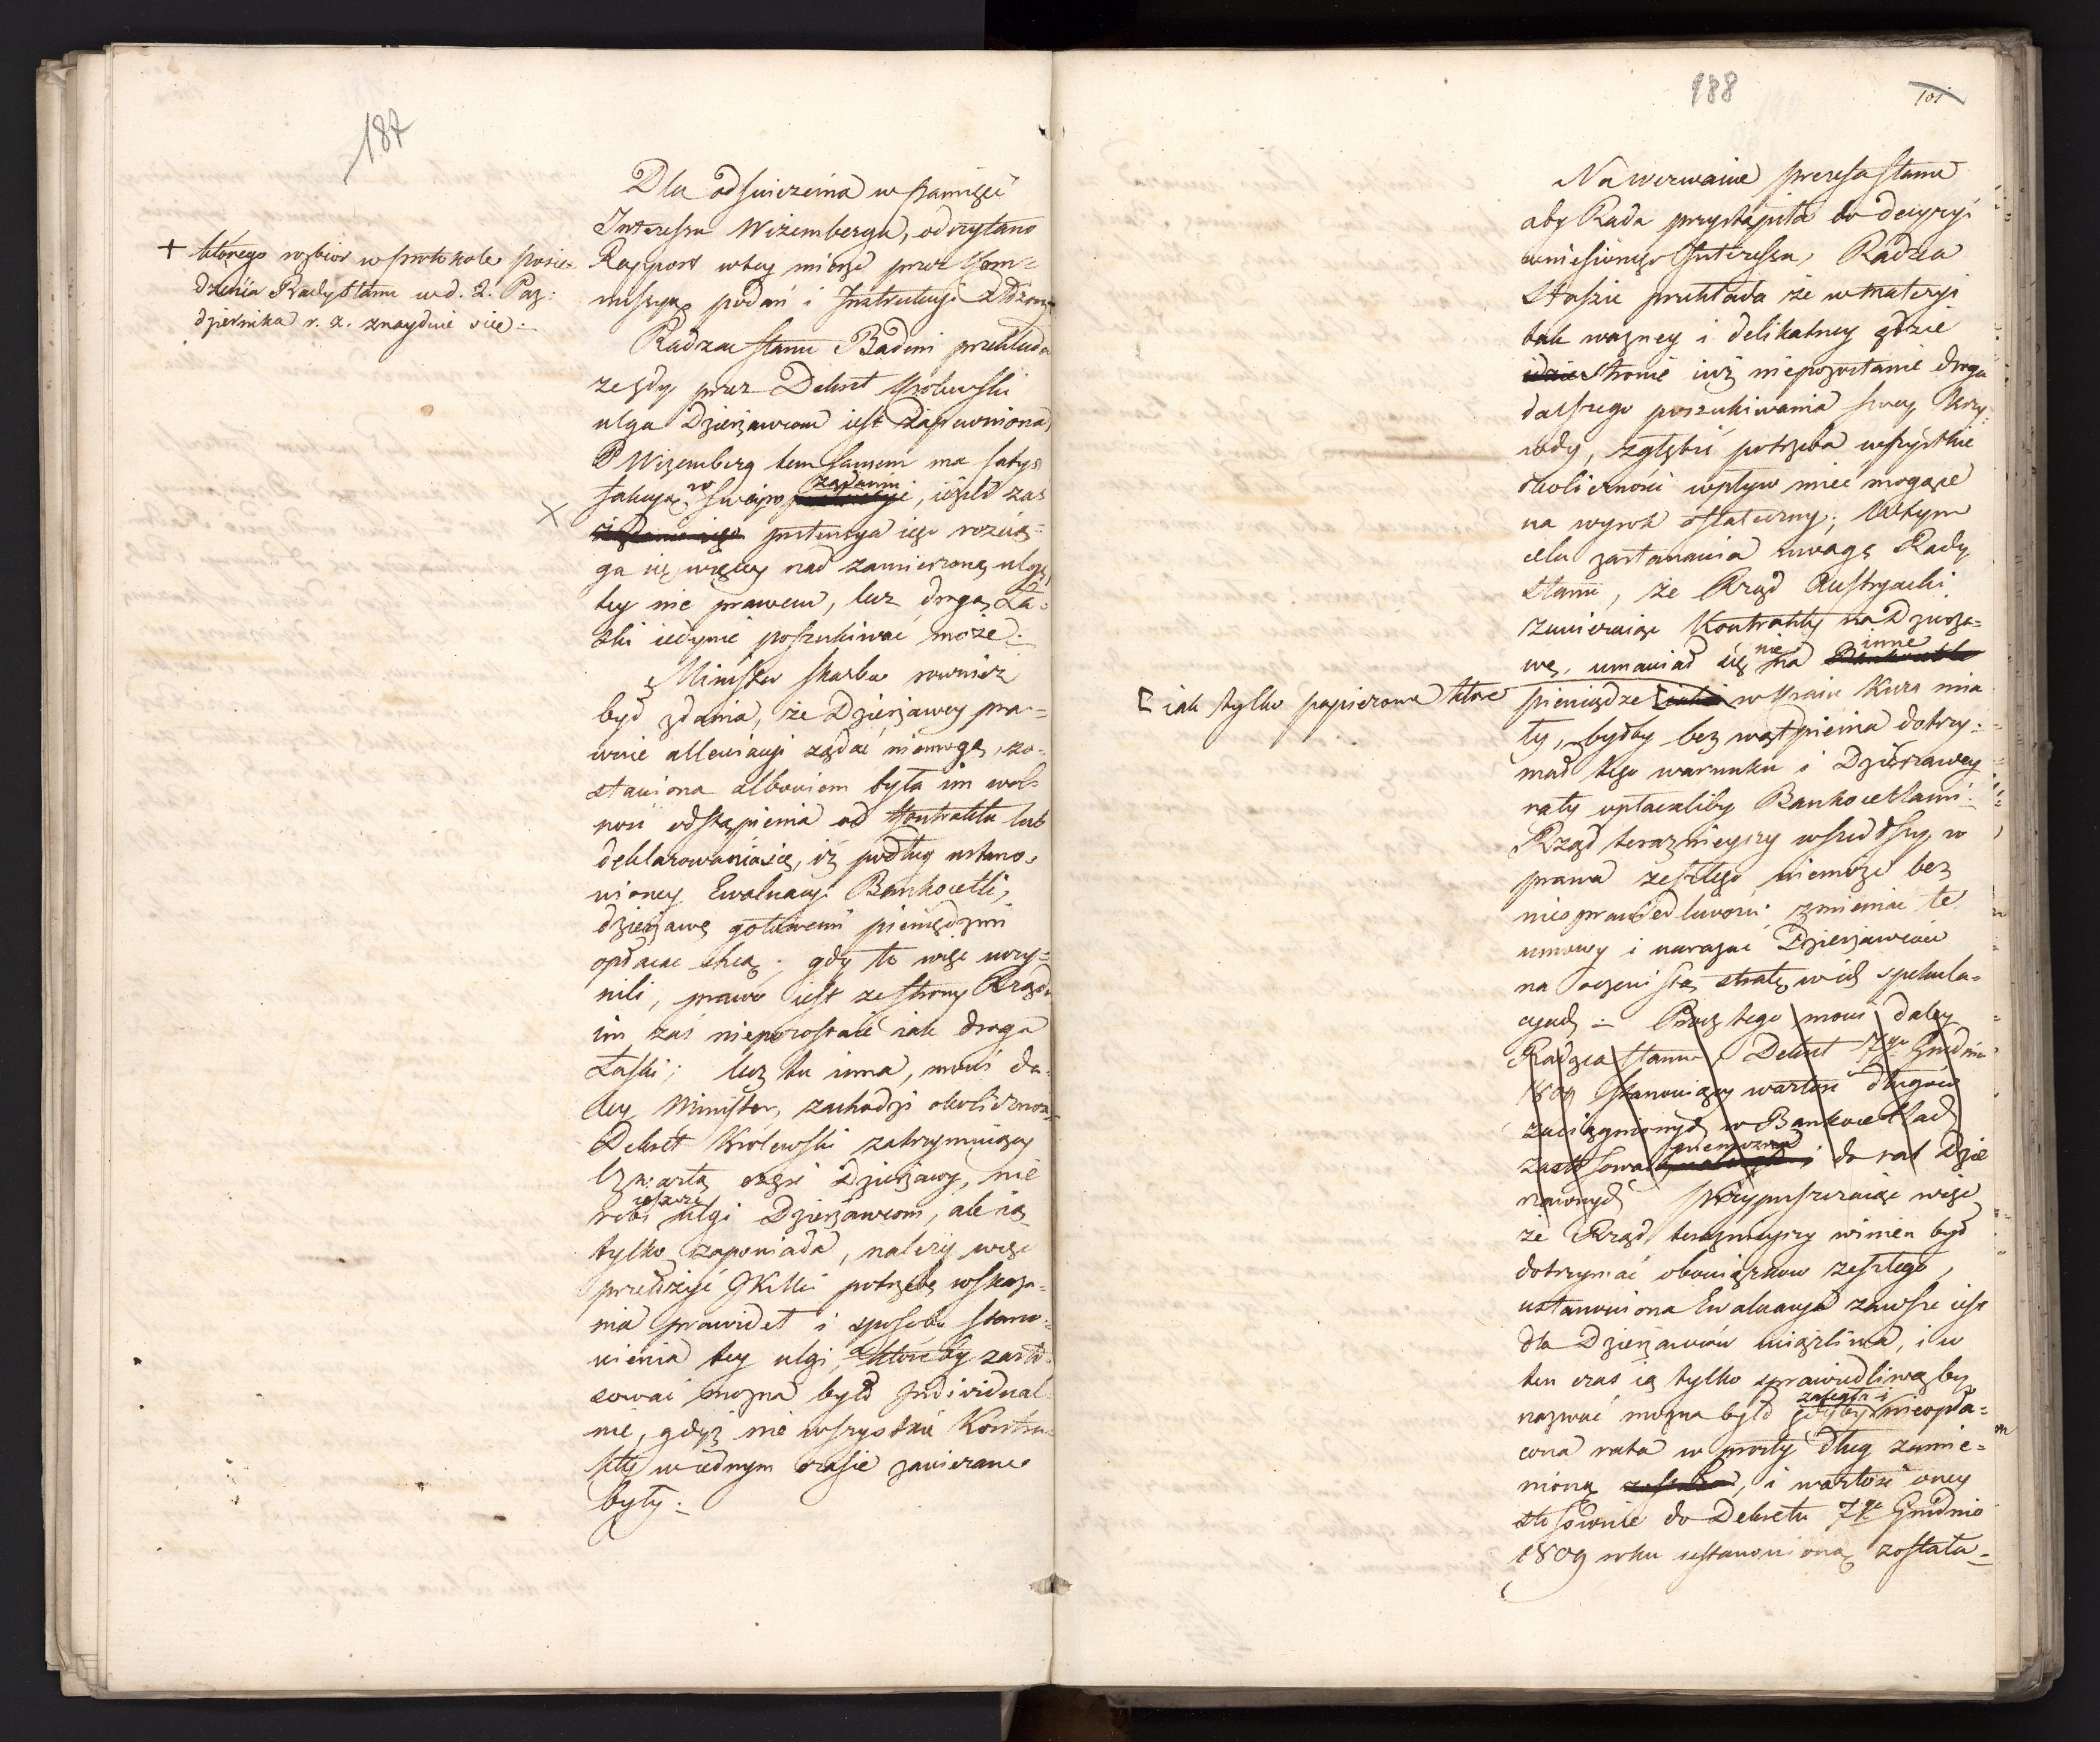 187
Dla odświeżenia w pamięci
Interessu Wizemberga, odczytano
Rapport w tey mierze przez Kom=
missyą podań i Instrukcyi złożony
+ którego rozbior w protokole posie=
dzenia Rady Stanu w d. 2. Paz:
dziernika r. z. znayduie się.
Radzca stanu Badeni przekłada
że gdy przez Dekret Krolewski
ulga Dzierżawcom iest zapewniona,
P Wizemberg tem samem ma satys
fakcyą w swoim żądaniu, ieżeli zaś
pretensya iego rozcią=
ga się więcey nad zamierzoną ulgę,
tey nie prawem, lecz drogą Ła=
ski iedynie poszukiwać może.
Minister skarbu rownież
był zdania, że Dzierżawcy pra=
wnie allewiacyi żądać niemogą, zo=
stawiona albowiem była im wol=
ność odstąpienia od Kontraktu lub
deklarowania się, iż podług ustano=
wioney Ewaluacyi Bankocetli,
dzierżawę gotowemi pieniędzmi
opłacać chcą; gdy to więc uczy=
nili, prawo iest ze strony Rządu
im zaś niepozostaie iak droga
Łaski; lecz tu inna, mówi da=
ley Minister, zachodzi okoliczność
Dekret Krolewski zatrzymuiący
czwartą część Dzierżawy, nie
robi ieszcze ulgi Dzierżawcom, ale ią
tylko zapowiada, należy więc
przełożyć JKMci potrzebę wskaza=
nia prawideł i sposobu stano=
wienia tey ulgi, któreby zasto=
sować można było Individual=
nie, gdyż nie wszystkie Kontra=
kty w iednym czasie zawierane
były.
188
101
Na wezwanie prezesa stanu
aby Rada przystąpiła do decyzyi
wniesionego Interessu, Radzca
Staszic przekłada że w materyi
tak ważney i delikatney gdzie
stronie iuż niepozostanie droga
dalszego poszukiwania swey krzy=
wdy, zgłębić potrzeba wszystkie
okoliczności wpływ mieć mogące
na wyrok ostateczny; W tym
celu zastanawia uwagę Rady
Stanu, że Rząd Austryacki
zawieraiąc Kontrakty na Dzierża=
wę, umawiał się nie na inne
pieniądze [ w Kraiu Kurs mia
[ iak tylko papierowe które
ły, byłby bez wątpienia dotrzy=
mał tego warunku i Dzierżawcy
raty opłacaliby Bankocetlami.
Rząd teraznieyszy wszedłszy w
prawa zeszłego niemoże bez
niesprawiedliwości zmieniać te
umowy i narażać Dzierżawców
na oczewistą stratę w ich spekula=
cyach. Procz tego mowi daley
Radzca stanu, Dekret 7go Grudnia
1809 stanowiący wartość długów
zaciągnionych w Bankocetlach
zastosować niemożna do rat Dzie
rżawnych przypuszczaiąc więc
że Rząd teraznieyszy winien był
dotrzymać obowiązkow zeszłego,
ustanowiona Ewaluacya zawsze iest
dla Dzierżawców uciążliwa, i w
ten czas ią tylko sprawiedliwą by
nazwać można było gdyby zaległa i nieopła=
cona rata w prosty dług zamie=
nioną, i wartość oney
stosownie do Dekretu 7go Grudnia
1809 roku ustanowioną została